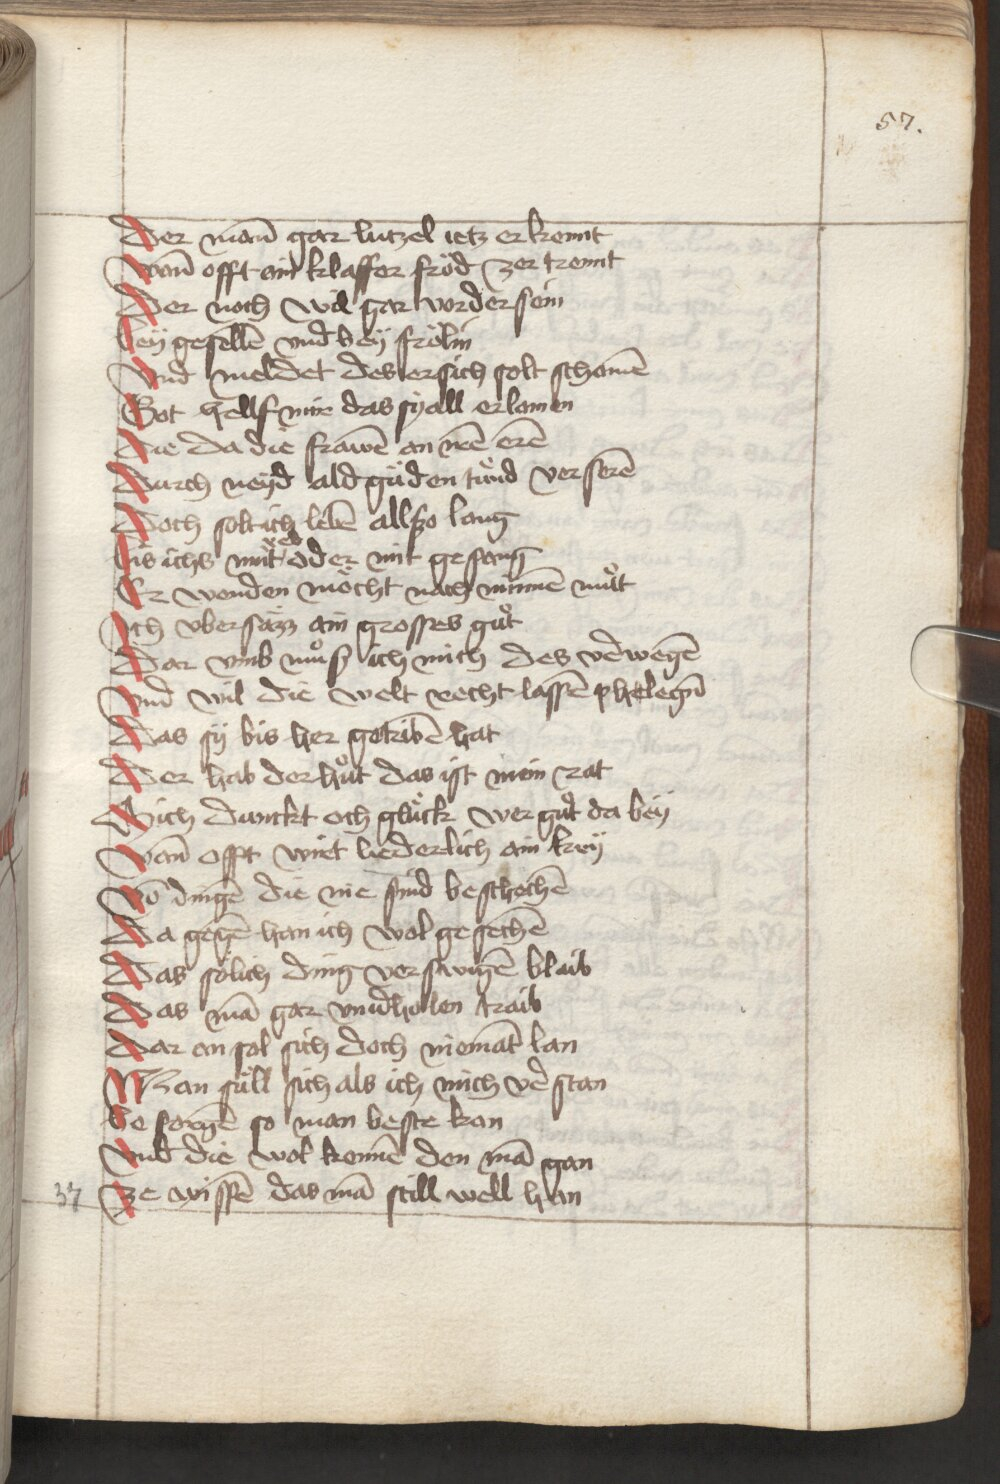 57.
Der man̄ gar lutzel ietz erkennt
Wan̄ offt ain klaffer fröd zertrennt
Der noch wil gar vorder sein
Bey gesellē vnd bey frölin
Vnd meldet des er sich solt schamē
Got hellf mir das sy all erlamen
Die da die frawē an irē erē
Durch neyd ald güden tünd verserē
Doch solt ich lebē allso lang
Bis ichs mit red oder mit gesang
Er wenden möcht nach minnē můt
Ich vbersäzz ain grosses gůt
Dar vmb můsz ich mich des v̄wegē
Vnd wil die welt recht lassē phlegn̄
Das sy bis her getribē hat
Der hab der hůt das ist mein rat
Mich dunckt och glück wer gůt da bey
Wan̄ offt wirt liederlich ain krey
Vō dingē die nie sind beschechē
Da gegē han ich wol gesechē
Das sölich ding verswigē blaib
Das mā gar vnūholen traib
Dar an sol sich doch niemāt lan
Man süll sich als ich mich v̄stan
Be sorgē so man beste kan
Vnd die wol kennē den mā gan
Ze wissē das mā still well han
37